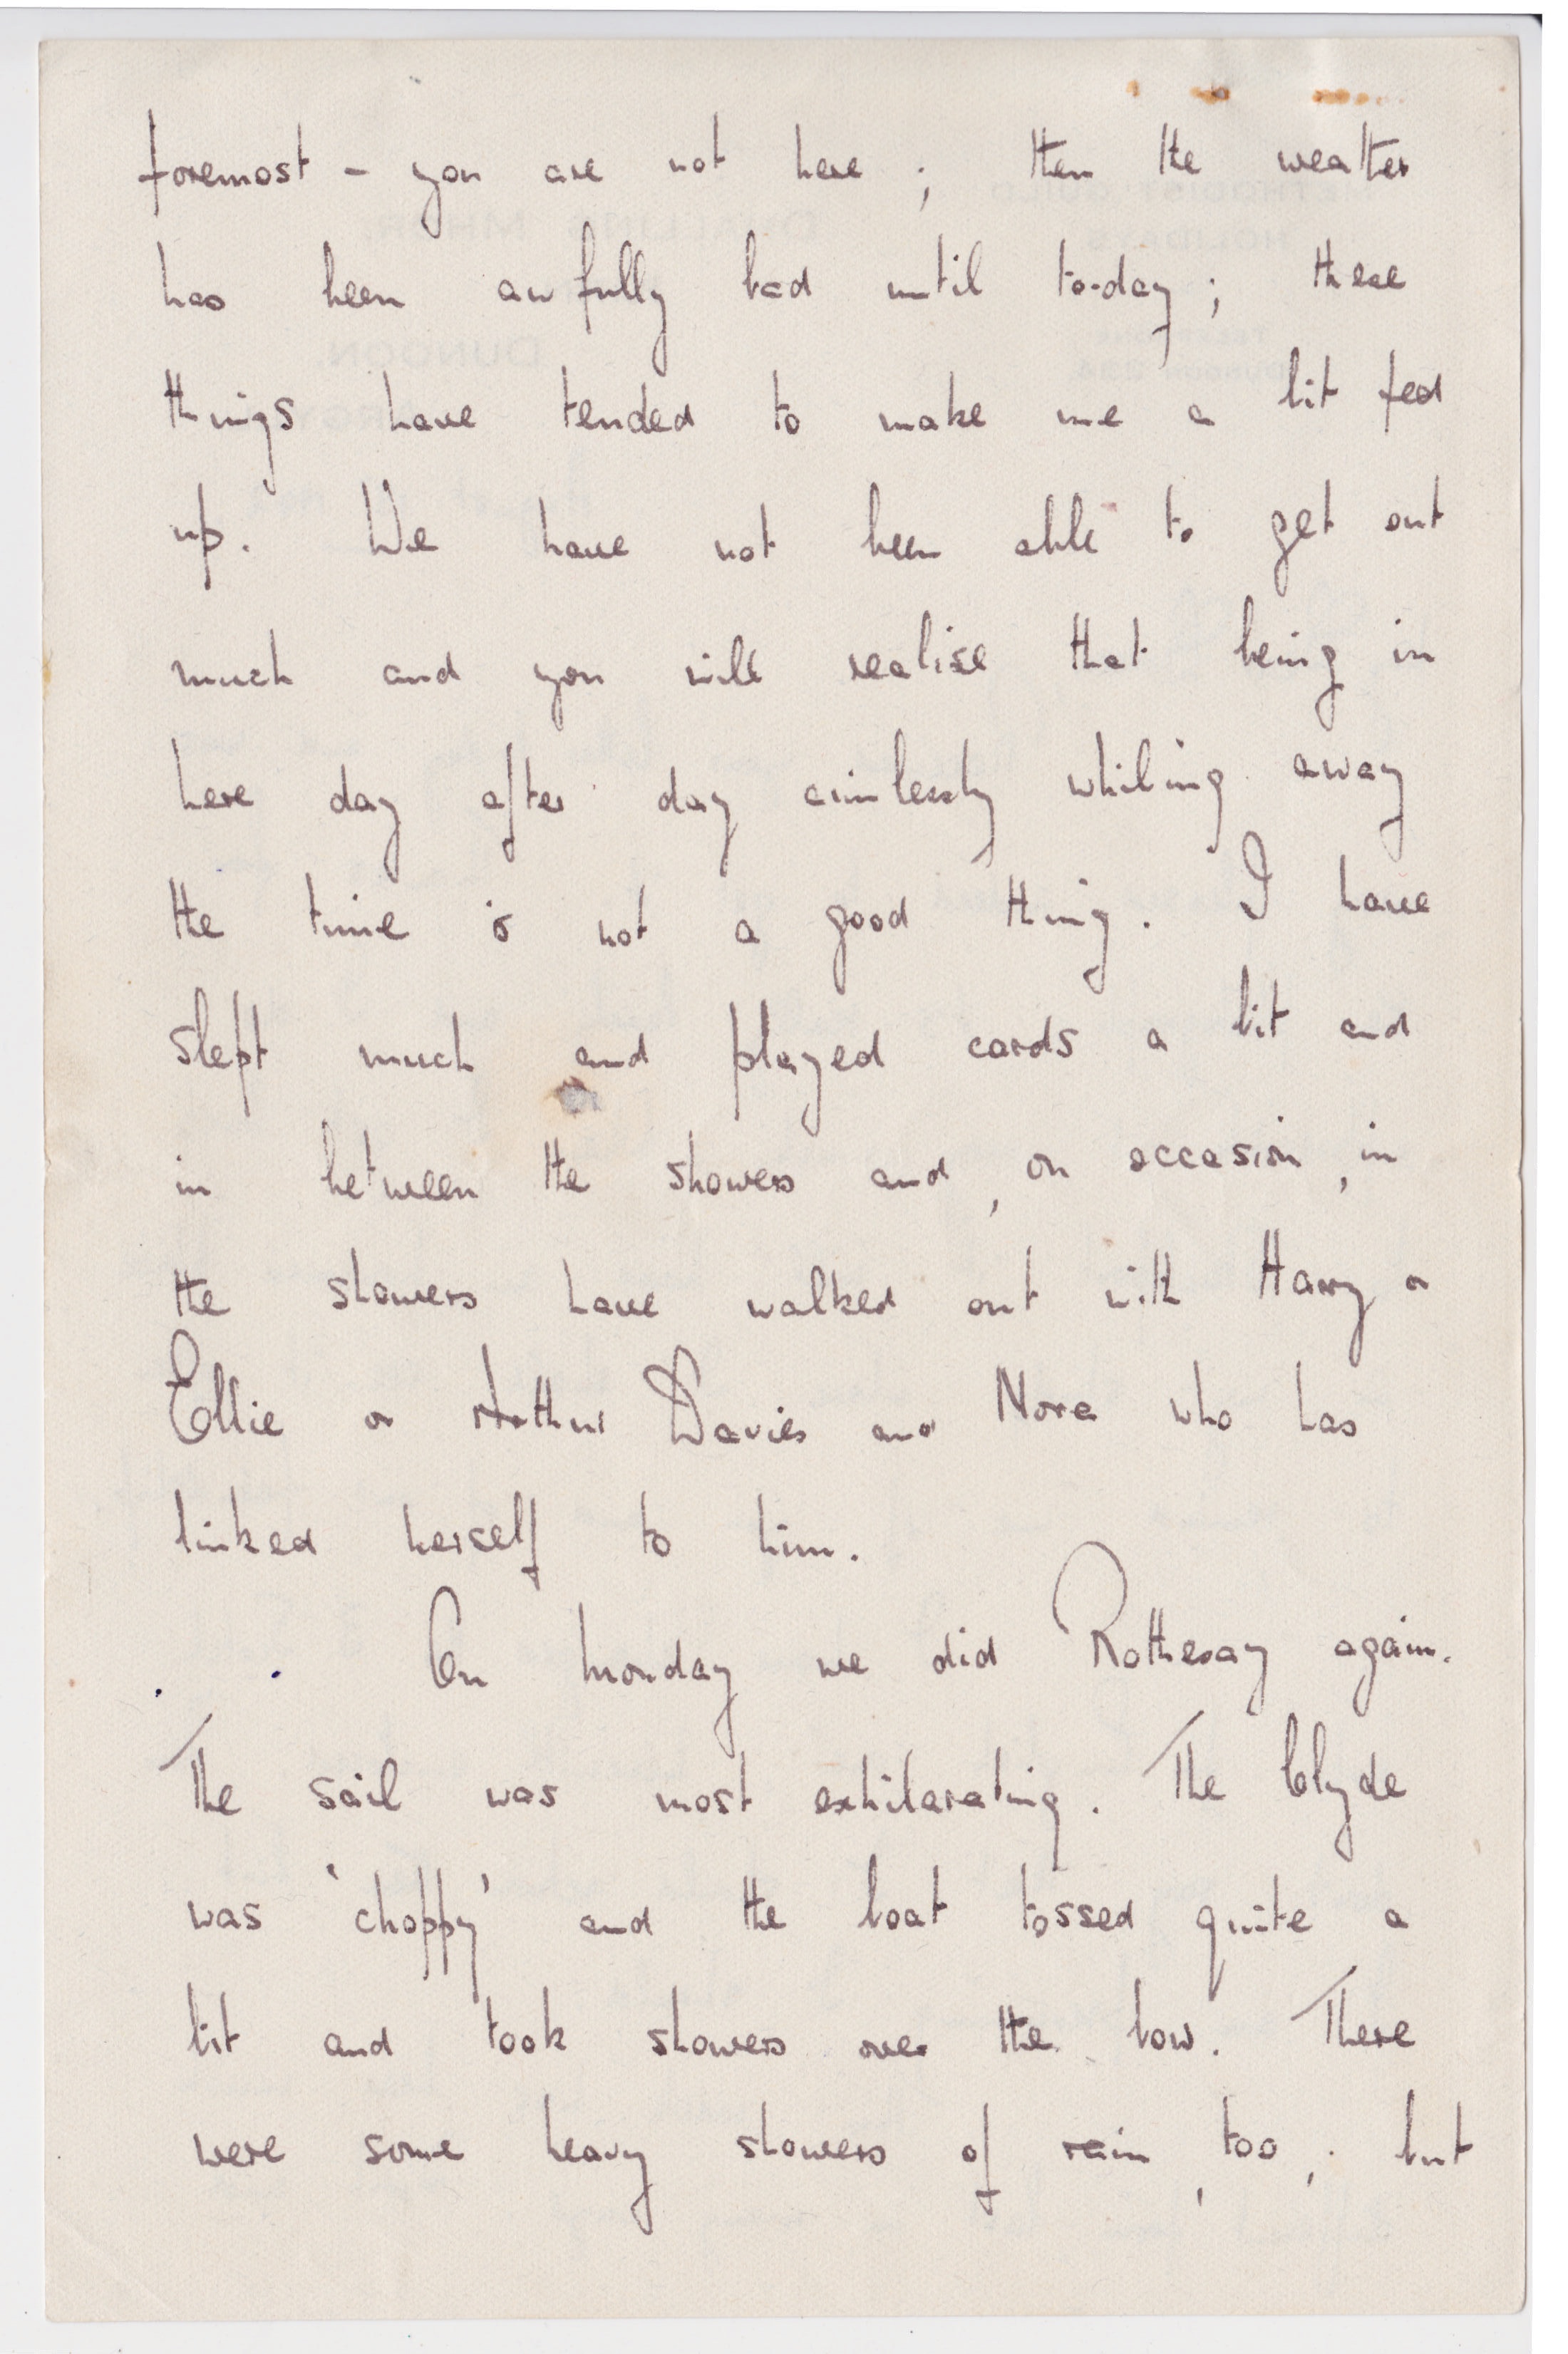 foremost - you are not here ; then the weather
has been awfully bad until to-day ; these
things have tended to make me a bit fed
up. We have not been able to get out
much and you will realise that being in
here day after day aimlessly whiling away
the time is not a good thing. I have
slept much and played cards a bit and
in between the showers and, on occasion, in
the showers have walked out with Harry or
Ellie or Arthur Davies and Nora who has
linked herself to him.
On Monday we did Rothesay again.
The sail was most exhilarating. The Clyde
was 'choppy' and the boat tossed quite a
bit and took showers over the bow. There
were some heavy showers of rain, too; but